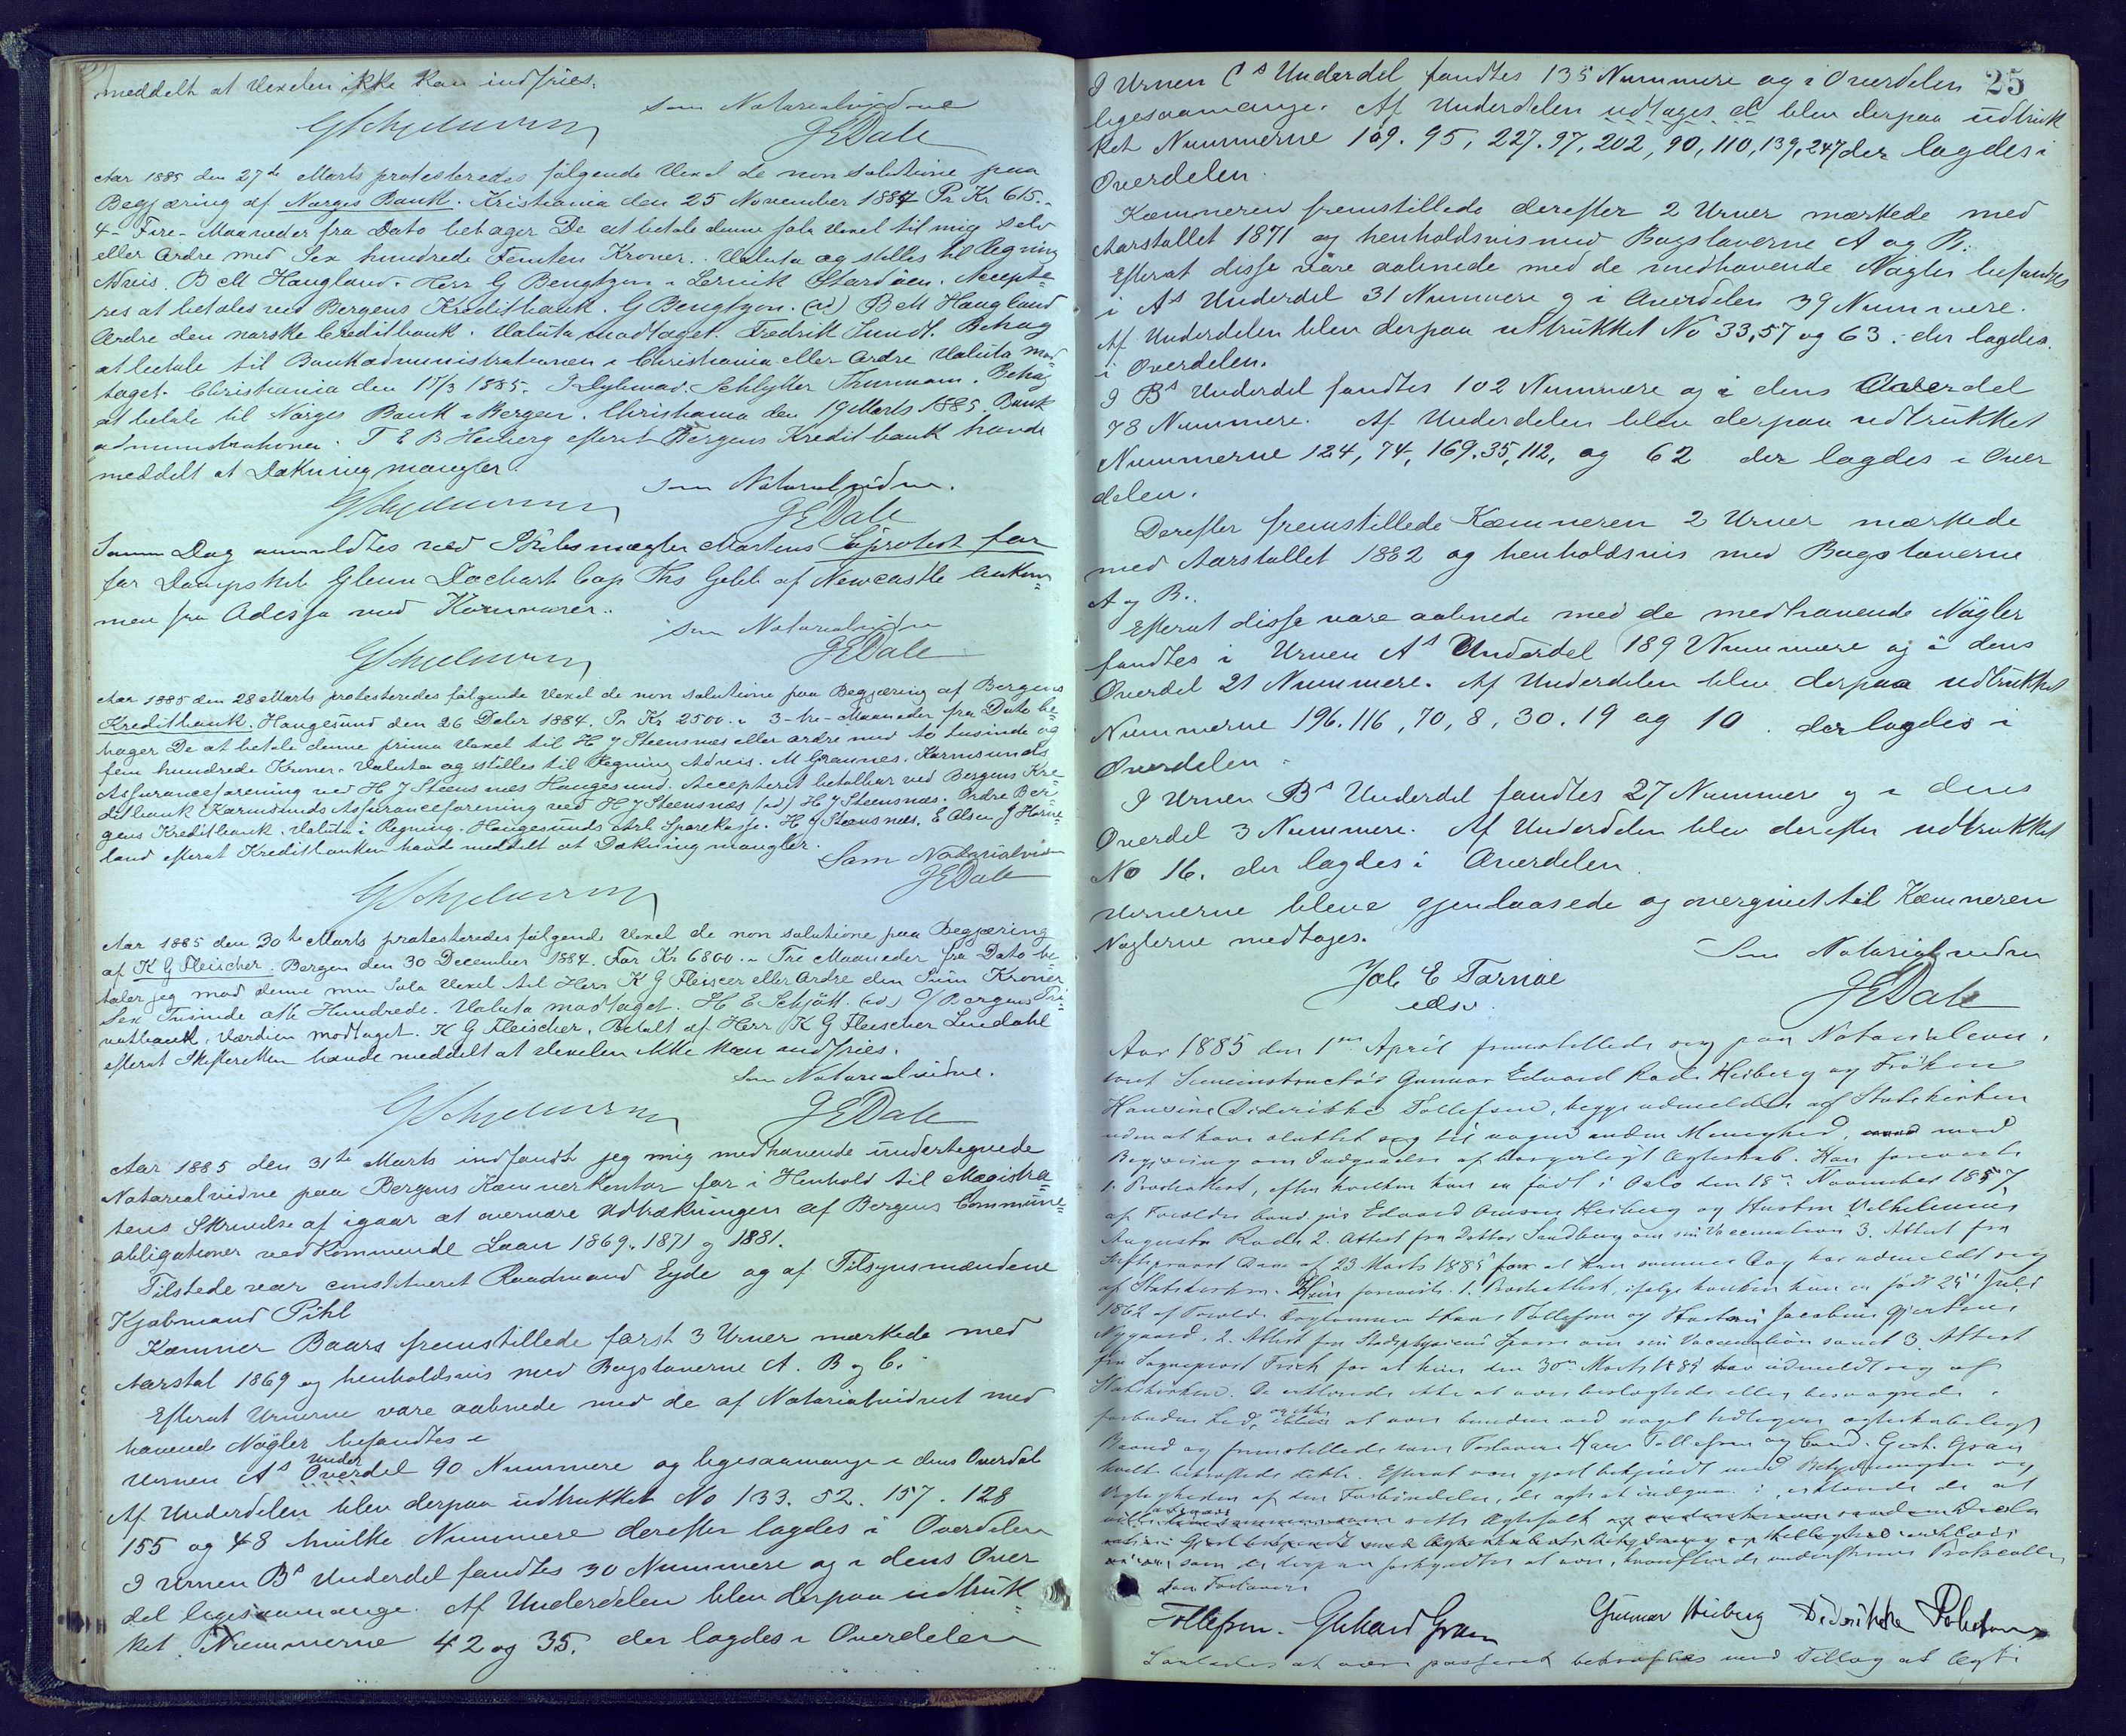 meddelt at Vexelen ikke kan indfries.
som Notarialvidne
GSchjelderup
JEDale
Aar 1885 den 27de Marts protesteredes følgende Vexel de non solutione paa
Begjæring af Norges Bank. Kristiania den 25 November 1884 Pr Kr 615.-
4 - Fire - Maaneder fra Dato behager De at betale denne sola Vexel til mig selv
eller Ordre med Sex hundrede Femten Kroner. Valuta og stilles til Regning
Advis. B M Haugland. Herr G Bengtzon i Lervik Stordöen. Accepte=
res at betales ved Bergens Kreditbank. G Bengtzon. (ed) B M Haugland
Ordre den norske Creditbank. Valuta modtaget. Fredrik Sundt. Behag
at betale til Bankadministrationen i Christiania eller Ordre Valuta mod
taget. Christiania den 17/3 1885. Schlytter Thurmann. Behag
at betale til Norges Bank i Bergen. Christiania den 19 Marts 1885. Bank
administrationen. T E B Heiberg efterat Bergens Kreditbank havde
meddelt at Dækning mangler.
som Notarialvidne.
GSchjelderup
JEDale
Samme Dag anmeldtes ved Skibsmægler Martens Søprotest for
for Dampskib Glenn Dochart Cap Ths Gebb af Newcastle ankom=
men fra Odessa med Kornvarer.
som Notarialvidne
GSchjelderup
JEDale
Aar 1885 den 28 Marts protesteredes følgende Vexel de non solutione paa Begjæring af Bergens
Kreditbank. Haugesund den 26 Decbr 1884. Pr Kr 2500.- 3 - tre - Maaneder fra Dato be=
hager De at betale denne prima Vexel til H J Steensnæs eller ordre med to tusinde og
fem hundrede Kroner. Valuta og stilles til Regning Advis. M Grannes. Karmsunds
Assuranceforening ved H J Steensnæs Haugesund. Accepteret betalbar ved Bergens Kre=
ditbank Karmsunds Assuranceforening ved H J Steensnæs (ed) H J Steensnæs. Ordre Ber=
gens Kreditbank. Valuta i Regning. Haugesunds Sparekasse. H J Steensnæs. E Olsen J Hauge=
land efterat Kreditbanken havde meddelt at Dækning mangler.
Som Notarialvidne
GSchjelderup
JEDale
Aar 1885 den 30te Marts protesteredes følgende Vexel de non solutione paa Begjæring
af K G Fleischer. Bergen den 30 December 1884. For Kr 6800.- Tre Maaneder fra Dato be=
taler jeg mod denne min Sola Vexel til Herr K G Fleischer eller Ordre den Sum Kroner
Sex Tusinde otte Hundrede. Valuta modtaget. H E Schjött. (ed) O/ Bergens Pri=
vatbank. Værdien modtaget. K G Fleischer. Betalt af Herr K G Fleischer Lindahl
efterat Skifteretten havde meddelt at Vexelen ikke kan indfries.
som Notarialvidne.
GSchjelderup
JEDale
Aar 1885 den 31te Marts indfandt jeg mig medhavende undertegnede
Notarialvidne paa Bergens Kæmnerkontor for i Henhold til Magistra=
tens Skrivelse af igaar at overvære Udtrækningen af Bergens Commune=
obligationer vedkommende Laan 1869, 1871 og 1881.
Tilstede var constitueret Raadmand Eyde og af Tilsynsmændene
Kjøbmand Pihl
Kæmner Baars fremstillede først 3 Urner mærkede med
Aarstal 1869 og henholdsvis med Bogstaverne A. B og C.
Efterat Urnerne vare aabnede med de af Notarialvidnet med
havende Nøgler befandtes i
Urnen As Under Overdel 90 Nummere og ligesaamange i dens Overdel
Af Underdelen blev derpaa udtrukket No 133. 52. 157. 128
155 og 48 hvilke Nummere derefter lagdes i Overdelen
I Urnen Bs Underdel fandtes 30 Nummere og i dens Over
del ligesaamange. Af Underdelen blev derpaa udtruk=
ket Nummerne 42 og 35. der lagdes i Overdelen
25
I Urnen Cs Underdel fandtes 135 Nummere og i Overdelen
ligesaamange. Af Underdelen udtages d blev derpaa udtruk
ket Nummerne 109. 95, 227. 97, 202, 90, 110, 139, 247 der lagdes i
Overdelen.
Kæmneren fremstillede derefter 2 Urner mærkede med
Aarstallet 1871 og henholdsvis med Bogstaverne A og B.
Efterat disse vare aabnede med de medhavende Nøgler befandtes
i As Underdel 31 Nummere og i Overdelen 39 Nummere.
Af Underdelen blev derpaa udtrukket No 33, 57 og 63. der lagdes
i Overdelen.
I Bs Underdel fandtes 102 Nummere og i dens Overdel
78 Nummere. Af Underdelen blev derpaa udtrukket
Nummerne 124, 74, 169. 35, 112, og 62 der lagdes i Over
delen.
Derefter fremstillede Kæmneren 2 Urner mærkede
med Aarstallet 1882 og henholdsvis med Bogstaverne
A og B.
Efterat disse vare aabnede med de medhavende Nøgler
fandtes i Urnen As Underdel 189 Nummere og i dens
Overdel 21 Nummere. Af Underdelen blev derpaa udtrukket
Nummerne 196. 116, 70, 8, 30. 19 og 10. der lagdes i
Overdelen.
I Urnen Bs Underdel fandtes 27 Nummere og i dens
Overdel 3 Nummere. Af Underdelen blev derefter udtrukket
No 16. der lagdes i Overdelen.
Urnerne bleve gjenlaasede og overgivet til Kæmneren
Nøglerne medtoges.
Som Notarialvidne
Jac E Tornöe
edsv.
JEDale
Aar 1885 den 1ste April fremstillede sig paa Notarialconto=
ret Sceneinstructör Gunnar Edvard Rode Heiberg og Fröken
Hansine Diderikke Tollefsen, begge udmeldte af Statskirken
uden at have sluttet sig til nogen anden Menighed, med
Begjæring om Indgaaelse af borgerligt Ægteskab. Han foreviste
1. Daabsattest, efter hvilken han er født i Oslo den 18de November 1857
af Forældre Edvard Omsen Heiberg og Hustru Vilhelmine
Augusta Rode 2. Attest fra Doktor Sandberg om sin Vaccination 3. Attest fra
af 23 Marts 1885 for at han samme Dag har udmeldt sig
af Statskirken. Hun foreviste 1. Daabsattest, ifølge hvilken hun er født 25 Juli
1862 af Forældre Hans Tollefsen og Hustru Jacobine Gjertine
Nygaard, 2. Attest fra om sin Vaccination samt 3. Attest
fra Sogneprest Frich for at hun den 30te Marts 1885 har udmeldt sig af
Statskirken. De erklærede ikke at være beslægtede eller besvogrede i
forbudne Led, og ikke at være bundne ved noget tidligere ægteskabeligt
Baand og fremstillede som Forlovere Hans Tollefsen og Cand. Gerh. Gran
hvilke bekræftede dette. Efterat være gjort bekjendt med Betydningen og
Vigtigheden af den Forbindelse, de agte at indgaa i, erklærede de at
ville være rette Ægtefolk
som de derpaa forkyndtes at være, hvorefter de underskreve Protocollen
som Forlovere
Tollefsen. Gerhard Gran
Gunnar Heiberg Dideriche Tollefsen
Saaledes at være passeret bekræftes med Tillæg at Ægte